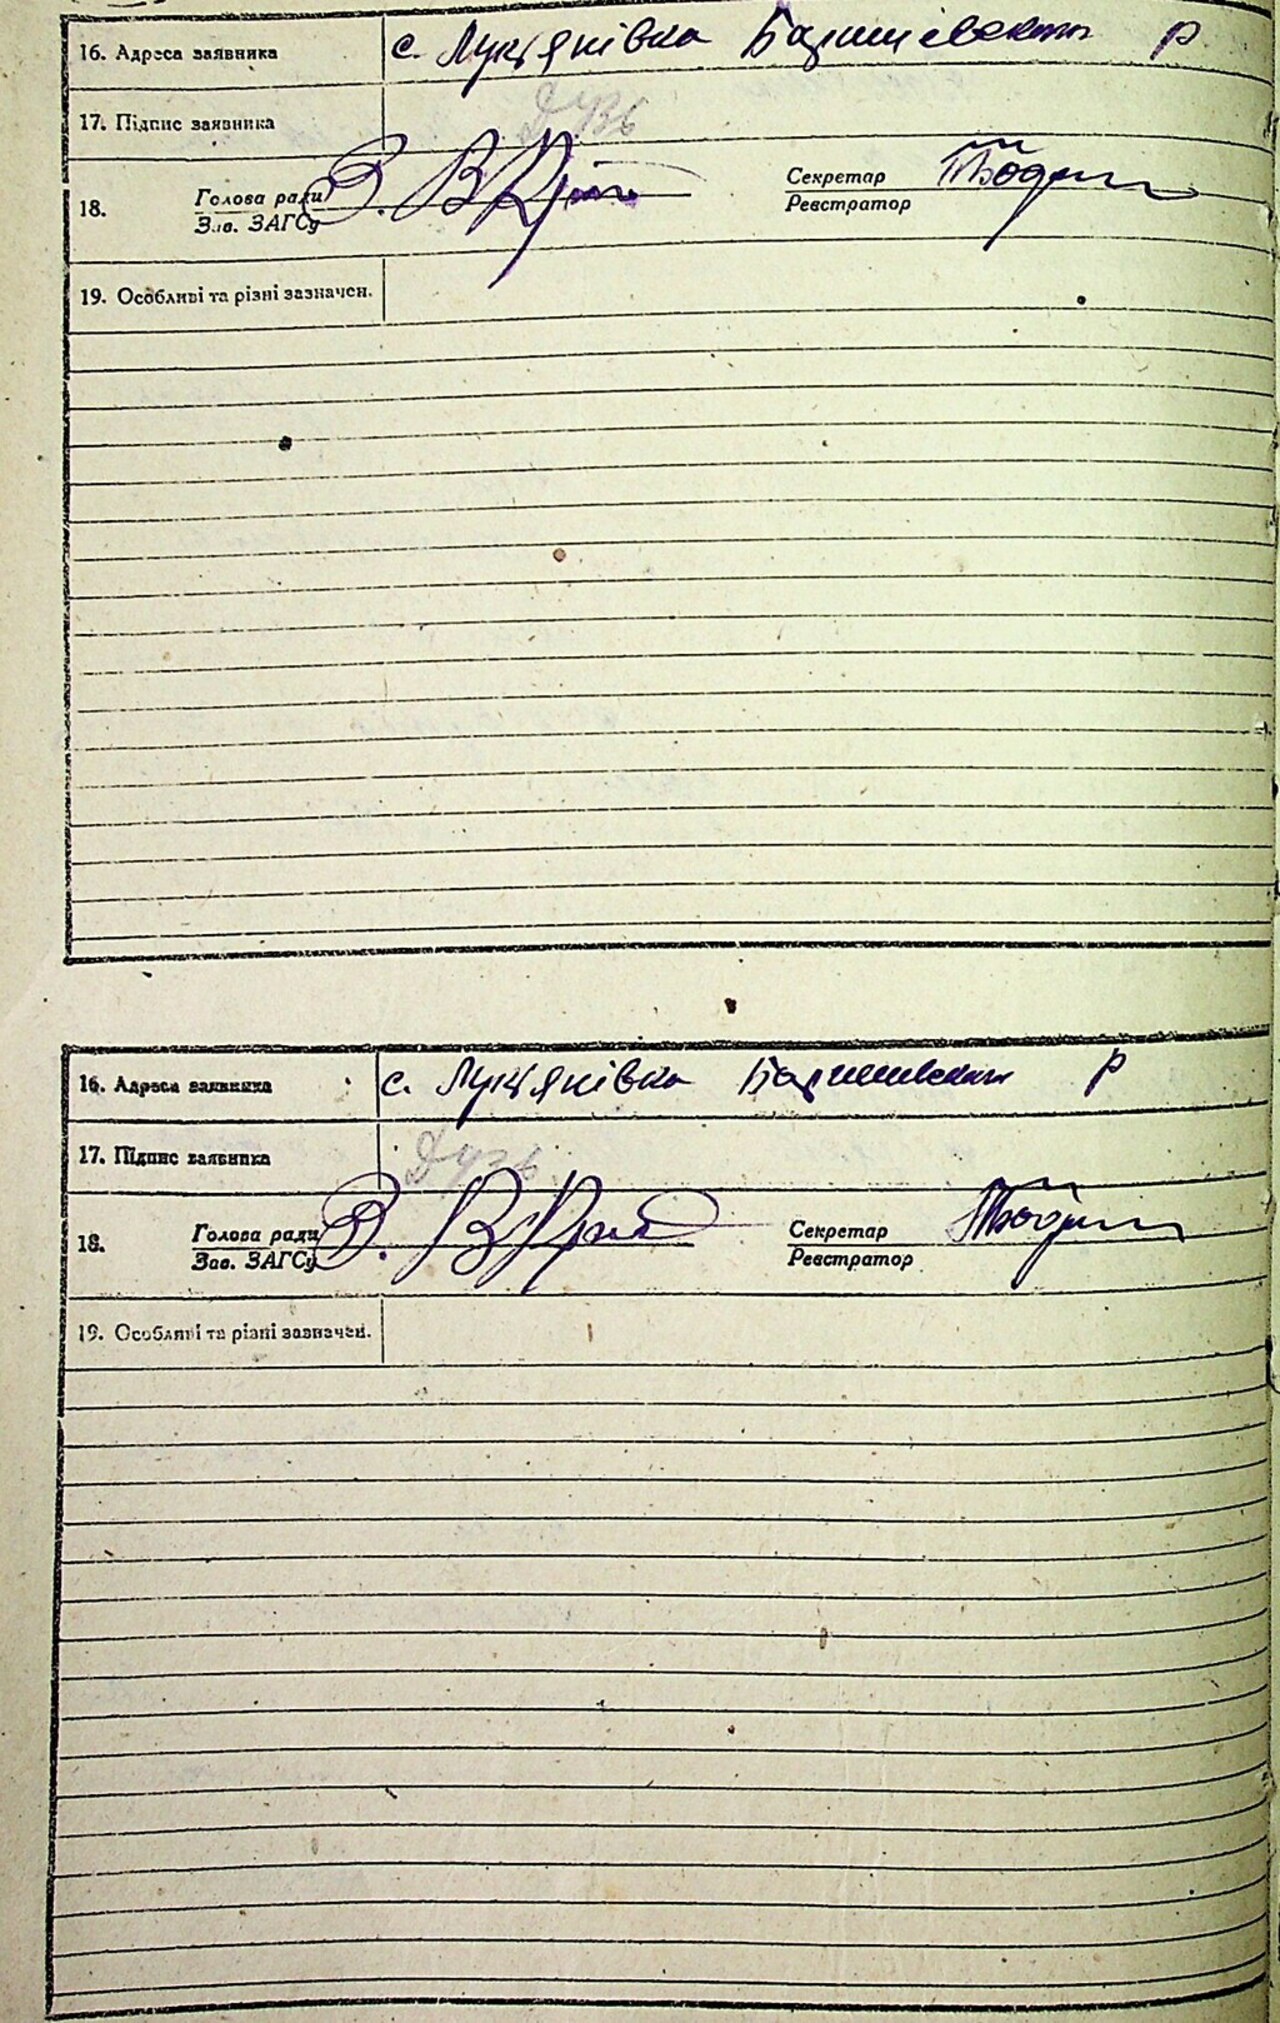 16. Адреса заявника с. Лукянівка Баришівський р
17. Підпис заявника Дузь
18. Голова ради Секретар
Зав. ЗАГСу Реєстратор
19. Особливі та різні зазначен.
16. Адреса заявника с. Лукянівка Баришівський р
17. Підпис заявника Дузь
18. Голова ради Секретар
Зав. ЗАГСу Реєстратор
19. Особливі та різні зазначен.